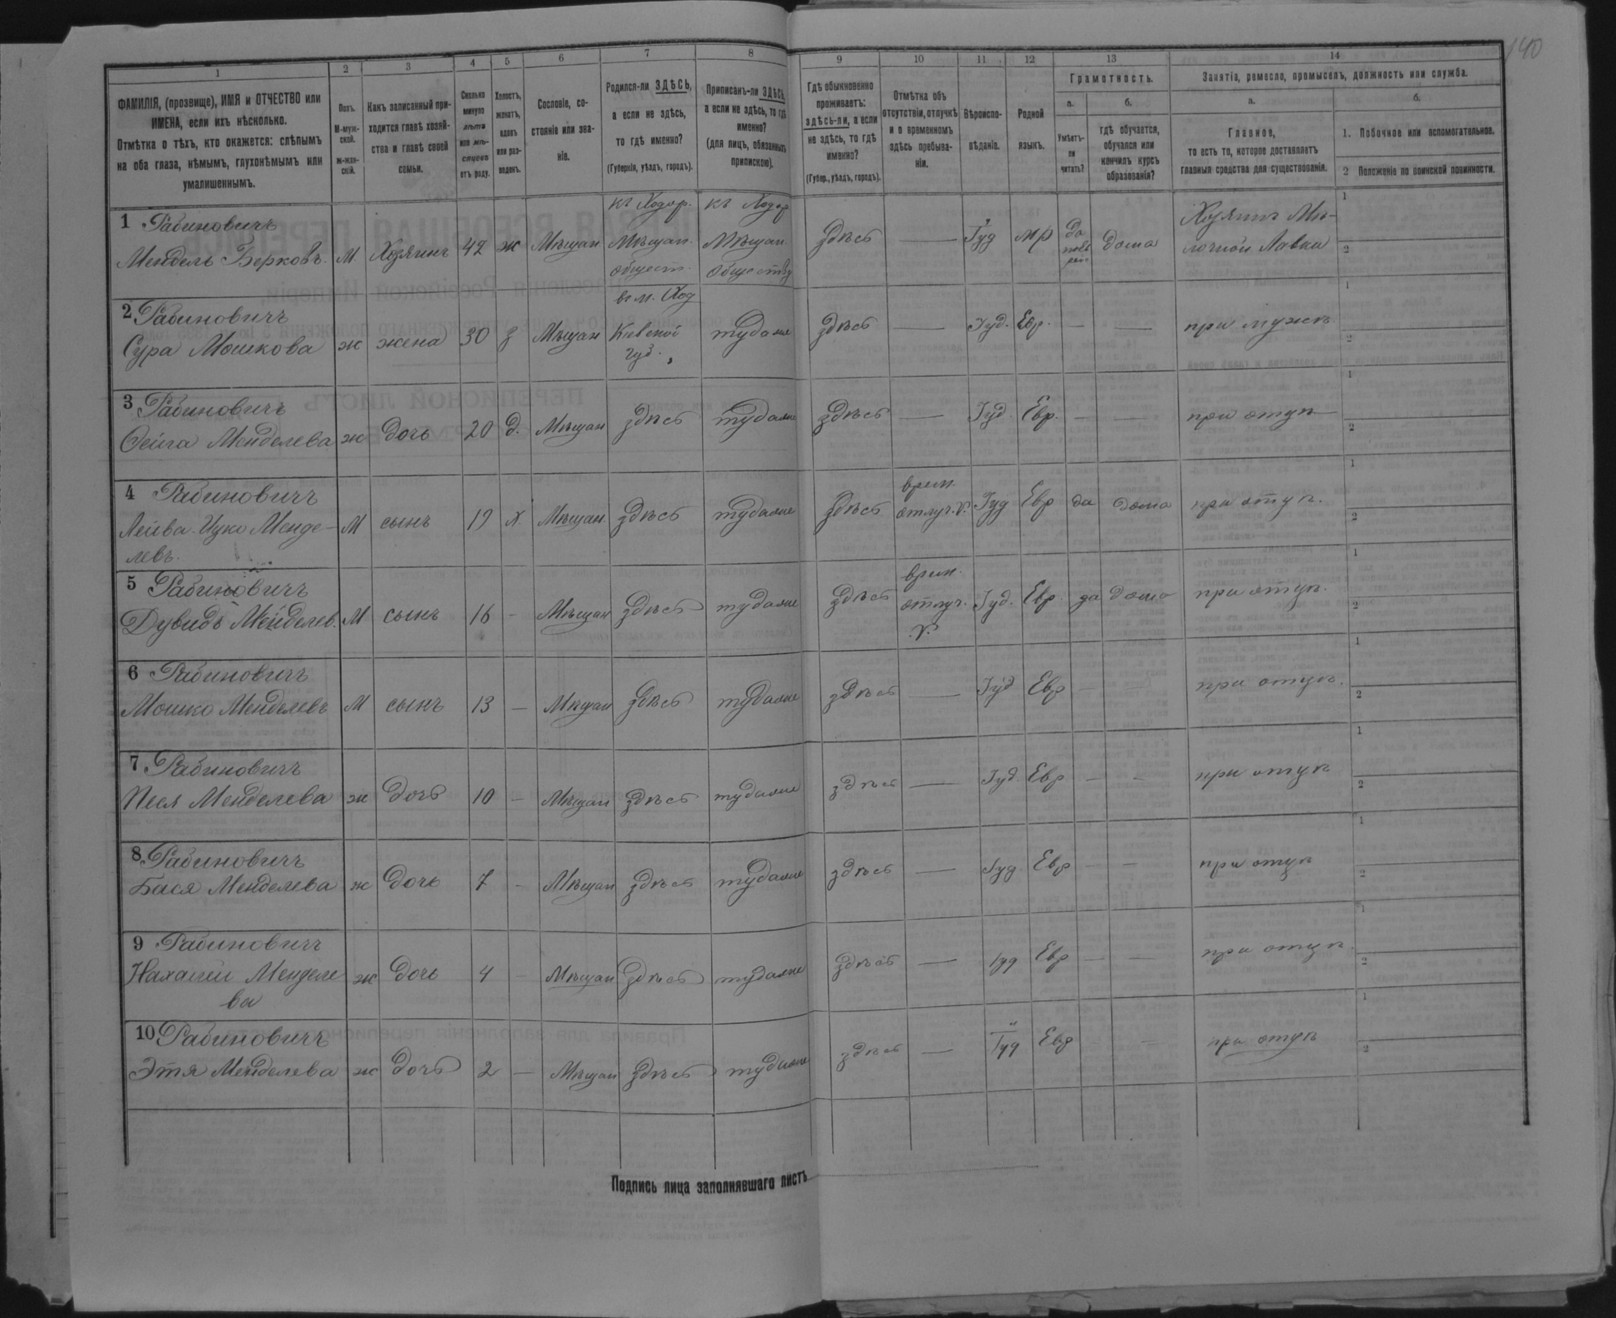 140
1 2 3 4 5 6 7 8 9 10 11 12 13 14
ФАМИЛІЯ, (прозвище), ИМЯ и ОТЧЕСТВО или
ИМЕНА, если ихъ нѣсколько.
Отмѣтка о тѣхъ, кто окажется: слѣпымъ
на оба глаза, нѣмымъ, глухонѣмымъ или
умалишеннымъ.
Полъ.
М-муж-
ской.
Ж-жен-
скій.
Какъ записанный при-
ходится главѣ хозяй-
ства и главѣ своей
семьи.
Сколько
минуло
лѣтъ
или мѣ-
сяцевъ
отъ роду.
Холостъ,
женатъ,
вдовъ
или раз-
веденъ.
Сословіе, со-
стояніе или зва-
ніе.
Родился-ли ЗДѢСЬ,
а если не здѣсь,
то гдѣ именно?
(Губернія, уѣздъ, городъ).
Приписанъ-ли ЗДѢСЬ,
а если не здѣсь, то гдѣ
именно?
(для лицъ, обязанныхъ
припискою).
Гдѣ обыкновенно
проживаетъ:
здѣсь-ли, а если
не здѣсь, то гдѣ
именно?
(Губер., уѣздъ, городъ).
Отмѣтка объ
отсутствіи, отлучкѣ
и о временномъ
здѣсь пребыва-
ніи.
Вѣроиспо-
вѣданіе.
Родной
языкъ.
Грамотность.
а.
Умѣетъ-
ли
читать?
б.
гдѣ обучается,
обучался или
кончилъ курсъ
образованія?
Занятіе, ремесло, промыселъ, должность или служба.
а.
Главное,
то есть то, которое доставляетъ
главныя средства для существованія.
б.
1. Побочное или вспомогательное.
2 Положеніе по воинской повинности.
1 Рабиновичъ
Мендель Берковъ М Хозяинъ 42 ж Мѣщан Мѣщан. общест. Мѣщан здѣсь — Іуд дома Хозяинъ Ме-
лочной Лавки
2 Рабиновичъ
Сура Мошкова ж жена 30 з Мѣщан в м. Ход Кіевской губ. тудаже здѣсь — Іуд. Евр. — — при мужѣ
3 Рабиновичъ
Фейга Менделева ж дочь 20 д. Мѣщан здѣсь тудаже здѣсь — Іуд. Евр. — — при отцѣ
4 Рабиновичъ
Лейба Ицко Менде-
левъ М сынъ 19 х Мѣщан здѣсь тудаже здѣсь врем. отлуч. Іуд Евр да дома при отцѣ.
5 Рабиновичъ
Дувидъ Менделев. М сынъ 16 - Мѣщан здѣсь тудаже здѣсь врем. отлуч. Іуд. Евр. да дома при отцѣ.
6 Рабиновичъ
Мошко Менделевъ М сынъ 13 — Мѣщан здѣсь тудаже здѣсь — Іуд Евр - при отцѣ.
7. Рабиновичъ
Песя Менделева ж дочь 10 - Мѣщан здѣсь тудаже здѣсь — Іуд. Евр — - при отцѣ
8. Рабиновичъ
Бася Менделева ж дочь 7 - Мѣщан здѣсь тудаже здѣсь — Іуд. Евр - — при отцѣ
9 Рабиновичъ
Менделе
ва ж дочь 4 - Мѣщан здѣсь тудаже здѣсь — Іуд Евр - — при отцѣ.
10 Рабиновичъ
Этя Менделева ж дочь 2 — Мѣщан здѣсь тудаже здѣсь — Іуд Евр при отцѣ
Подпись лица заполнявшаго листъ